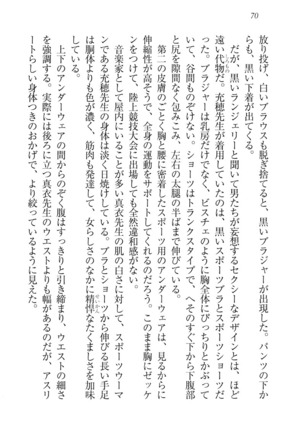 70
放り投げ、白いブラウスも脱ぎ捨てると、黒いブラジャーが出現した。パンツの下か
らも、黒い下着が出てくる。
だが、黒いランジェリーと聞いて男たちが妄想するセクシーなデザインとは、ほど
遠い代物だ。充穂先生が着用していたのは、黒いスポーツブラとスポーツショーツだ
った。ブラジャーは乳房だけでなく、ビスチェのように胸全体にぴっちりとかぶって
いて、谷間ものぞけない。ショーツはトランクスタイプで、へそのすぐ下から下腹部
と尻を隙間なく包みこみ、左右の太腿の半ばまで伸びている。
第二の皮膚のごとく胸と腰に密着したスポーツ用のアンダーウェアは、見るからに
伸縮性が高そうで、全身の運動をサポートしてくれるのだろう。このまま胸にゼッケ
ンをつけて、陸上競技大会に出場しても全然違和感がない。
音楽家として屋内にいることが多い真衣先生の肌の白さに対して、スポーツウーマ
ンである充穂先生の身体は淡く日焼けしている。ブラとショーツから伸びる長い手足
は胴体よりも色が濃く、筋肉も発達して、女らしさのなかに精悍なたくましさを加味
している。
上下のアンダーウェアの間からのぞく腹はすっきりと引き締まり、ウエストの細さ
を強調する。実際には後ろに立つ真衣先生のウエストよりも幅があるのだが、アスリ
ートらしい身体つきのおかげで、より絞っているように見えた。